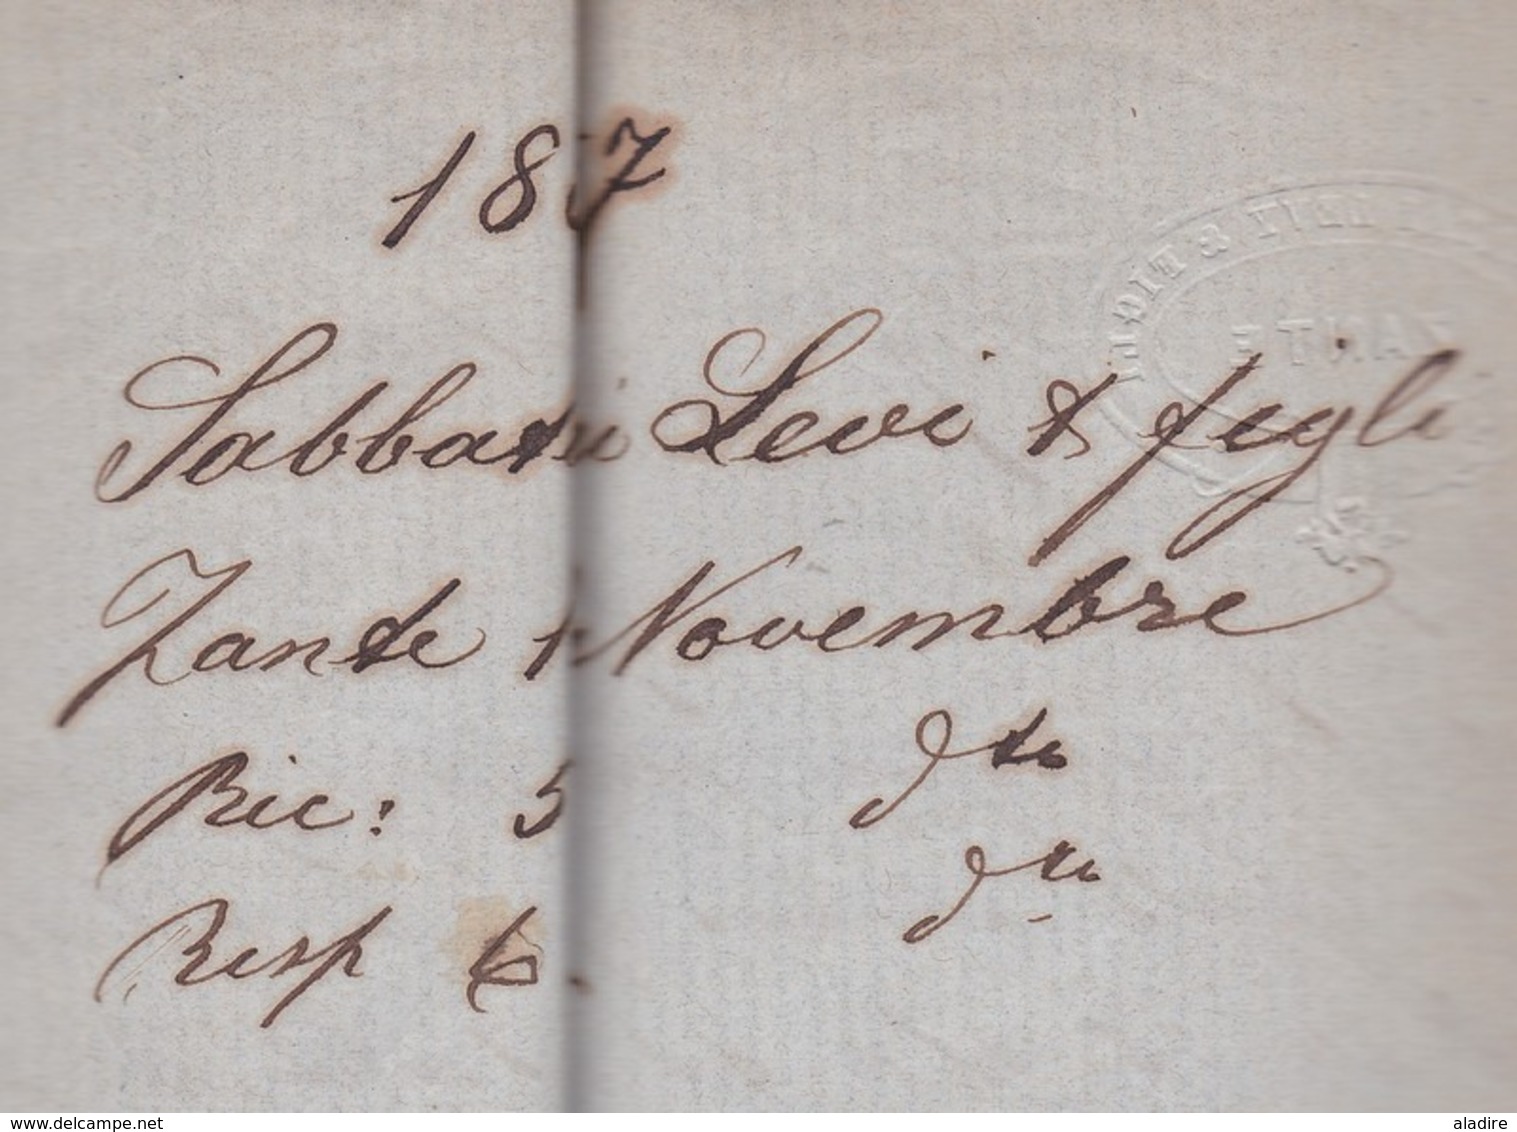 1867
Sabbati Levi & figli
Zante 1 Novembre
Ric: 5 dto
Resp 6. dto
LEVI & FIGLI
ZANTE
www.delcampe.net
aladire